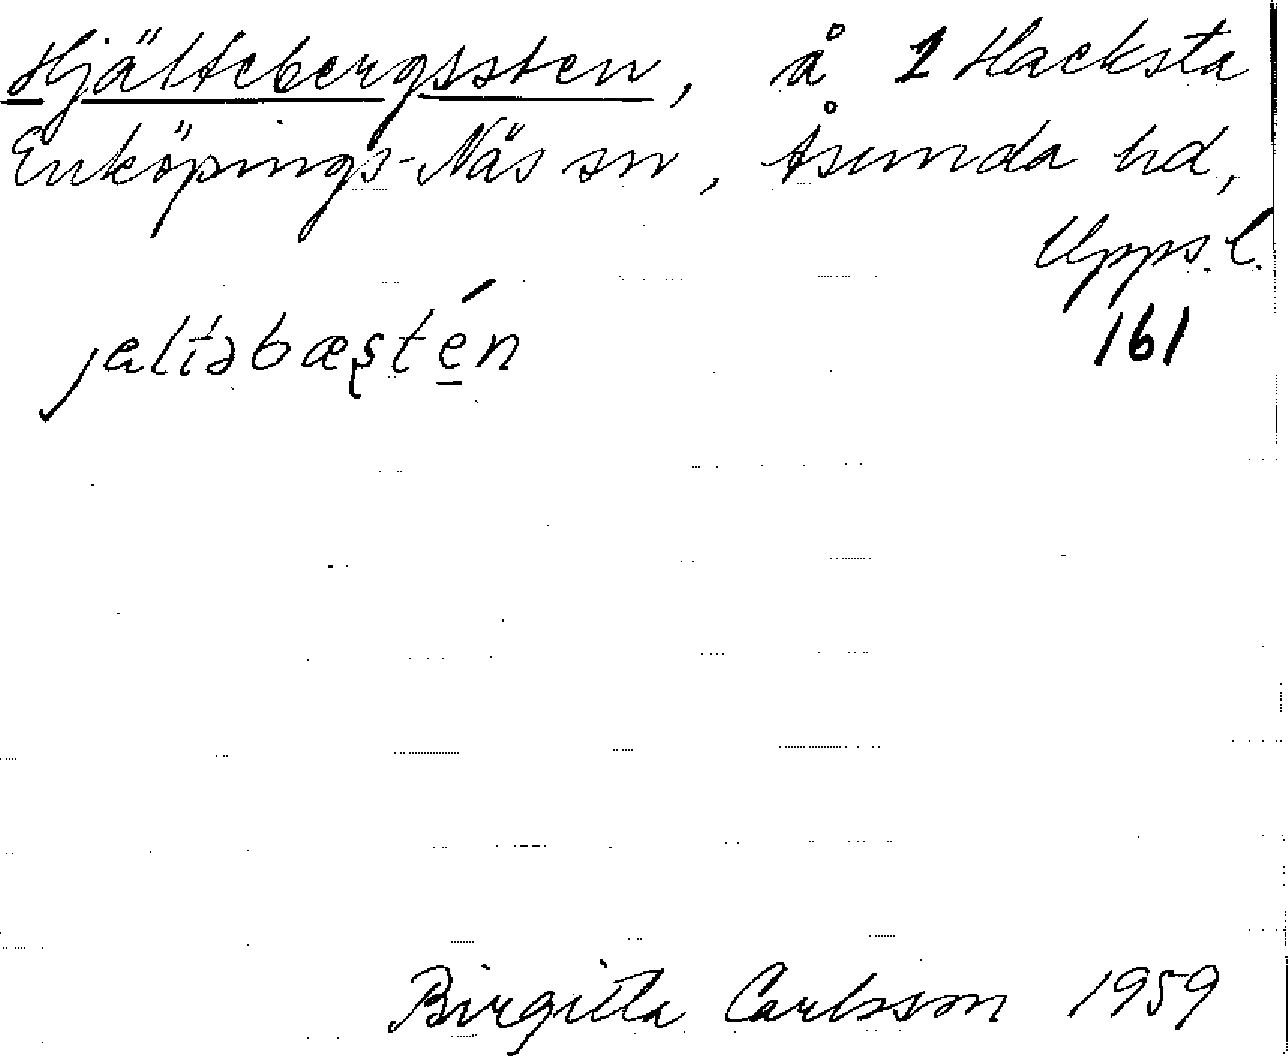 Hjältebergssten, å 2 Hacksta
Enköpings-Näs sn, Åsunda hd,
Upps. l.
161
jæltəbæʂtén
Birgitta Carlsson 1959